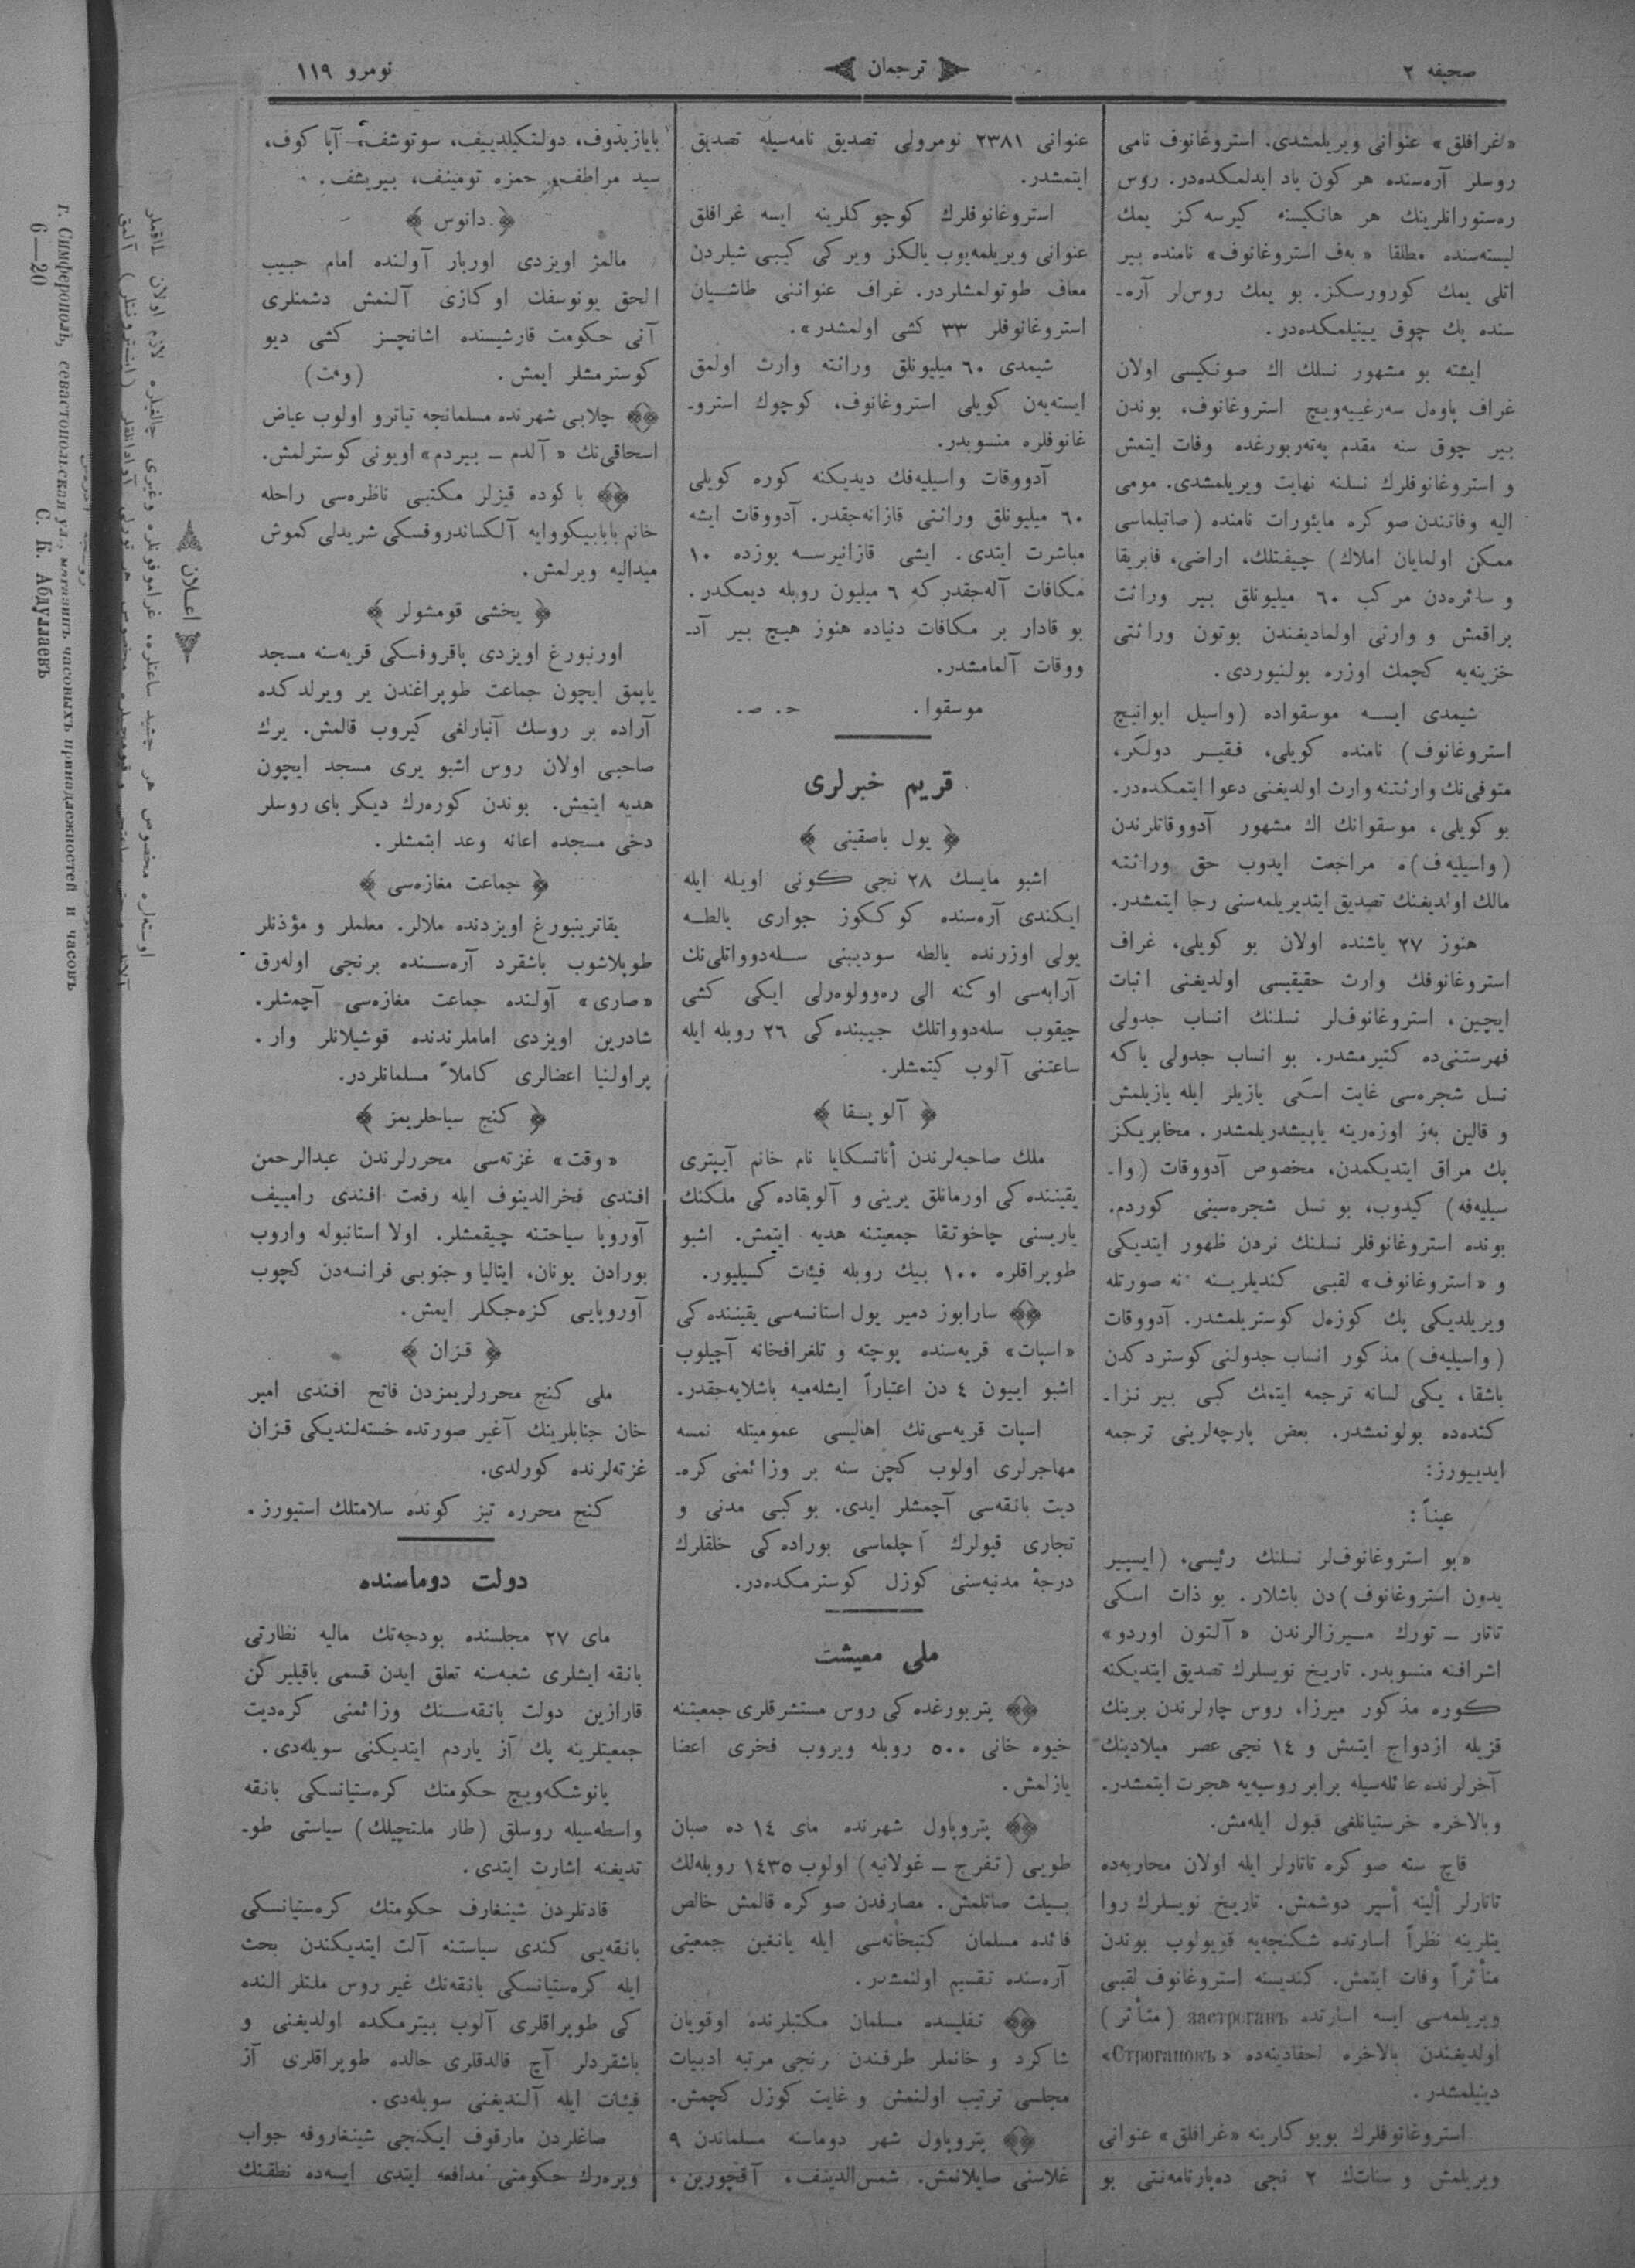 صحیفه ٢
ترجمان
نومرو ١١٩
«غرافلق» عنوانی ویریلمشدی. استروغانوف نامی
روسلر آره‌سنده هر کون یاد ایدلمکده‌در. روس
ره‌ستورانلرینك هر هانکیسنه کیرسه‌کز یمك
لیسته‌سنده مطلقا «به‌ف استروغانوف» نامنده بیر
اتلی یمك کورورسکز. بو یمك روس‌لر آره‌ـ
سنده پك چوق یینیلمکده‌در.
ایشته بو مشهور نسلك اك صونکیسی اولان
غراف پاوه‌ل سه‌رغییه‌ویچ استروغانوف، بوندن
بیر چوق سنه مقدم په‌ته‌ربورغده وفات ایتمش
و استروغانوفلرك نسلنه نهایت ویریلمشدی. مومی
الیه وفاتندن صوکره مایئورات نامنده (صاتیلماسی
ممکن اولمایان املاك) چیفتلك، اراضی، فابریقا
و سائره‌دن مرکب ٦٠ میلیونلق بیر وراثت
براقمش و وارثی اولمادیغندن بوتون وراثتی
خزینه‌یه کچمك اوزره بولنیوردی.
شیمدی ایسه موسقواده (واسیل ایوانیچ
استروغانوف) نامنده کویلی، فقیر دولکر،
متوفی‌نك وارثتنه وارث اولدیغنی دعوا ایتمکده‌در.
بو کویلی، موسقوانك اك مشهور آدووقاتلرندن
(واسیلیه‌ف)ه مراجعت ایدوب حق وراثته
مالك اولدیغنك تصدیق ایتدیریلمه‌سنی رجا ایتمشدر.
هنوز ٢٧ یاشنده اولان بو کویلی، غراف
استروغانوفك وارث حقیقیسی اولدیغنی اثبات
ایچین، استروغانوف‌لر نسلنك انساب جدولی
فهرستنی‌ده کتیرمشدر. بو انساب جدولی یاکه
نسل شجره‌سی غایت اسکی یازیلر ایله یازیلمش
و قالین به‌ز اوزه‌رینه یاپیشدریلمشدر. مخابریکز
پك مراق ایتدیکمدن، مخصوص آدووقات (وا‌ـ
سیلیه‌فه) کیدوب، بو نسل شجره‌سینی کوردم.
بونده استروغانوفلر نسلنك نردن ظهور ایتدیکی
و «استروغانوف» لقبی کندیلرینه نه صورتله
ویریلدیکی پك کوزه‌ل کوستریلمشدر. آدووقات
(واسیلیه‌ف) مذکور انساب جدولنی کوستردکدن
باشقا، یکی لسانه ترجمه ایتمك کبی بیر نزا‌ـ
کتده‌ده بولونمشدر. بعض پارچه‌لرینی ترجمه
ایدییورز:
عیناً:
«بو استروغانوف‌لر نسلنك رئیسی، (ایسپیر
یدون استروغانوف)دن باشلار. بو ذات اسکی
تاتار ـ تورك میرزالرندن «آلتون اوردو»
اشرافنه منسوبدر. تاریخ نویسلرك تصدیق ایتدیکنه
کوره مذکور میرزا، روس چارلرندن برینك
قزیله ازدواج ایتمش و ١٤ نجی عصر میلادینك
آخرلرنده عائله‌سیله برابر روسیه‌یه هجرت ایتمشدر.
وبالاخره خرستیانلغی قبول ایله‌مش.
قاچ سنه صوکره تاتارلر ایله اولان محاربه‌ده
تاتارلر ألینه أسیر دوشمش. تاریخ نویسلرك روا
یتلرینه نظراً اسارتده شکنجه‌یه قویولوب بوندن
متأثراً وفات ایتمش. کندیسنه استروغانوف لقبی
ویریلمه‌سی ایسه اسارتده застроганъ (متأثر)
اولدیغندن بالاخره احفادینه‌ده «Строгановъ»
دینیلمشدر.
استروغانوفلرك بویوکلرینه «غرافلق» عنوانی
ویریلمش و سناتك ٢ نجی ده‌پارتامه‌نتی بو
عنوانی ٢٣٨١ نومرولی تصدیق نامه‌سیله تصدیق
ایتمشدر.
استروغانوفلرك کوچوکلرینه ایسه غرافلق
عنوانی ویریلمه‌یوب یالکز ویرکی کیبی شیلردن
معاف طوتولمشلردر. غراف عنواننی طاشیان
استروغانوفلر ٣٣ کشی اولمشدر».
شیمدی ٦٠ میلیونلق وراثته وارث اولمق
ایسته‌یه‌ن کویلی استروغانوف، کوچوك استروـ
غانوفلره منسوبدر.
آدووقات واسیلیه‌فك دیدیکنه کوره کویلی
٦٠ میلیونلق وراثتی قازانه‌جقدر. آدووقات ایشه
مباشرت ایتدی. ایشی قازانیرسه یوزده ١٠
مکافات آله‌جقدرکه ٦ میلیون روبله دیمکدر.
بو قادار بر مکافات دنیاده هنوز هیچ بیر آدـ
ووقات آلمامشدر.
موسقوا. ح. ص.
قریم خبرلری
﴿ یول باصقینی ﴾
اشبو مایسك ٢٨ نجی کونی اویله ایله
ایکندی آره‌سنده کوککوز جواری یالطه
یولی اوزرنده یالطه سودیبنی سله‌دوواتلی‌نك
آرابه‌سی اوکنه الی ره‌وولوه‌رلی ایکی کشی
چیقوب سله‌دوواتلك جیبنده‌کی ٢٦ روبله ایله
ساعتنی آلوب کیتمشلر.
﴿ آلوپقا ﴾
ملك صاحبه‌لرندن أناتسکایا نام خانم آیپتری
یقیننده‌کی اورمانلق یرینی و آلوپقاده‌کی ملکنك
یاریسنی چاخوتقا جمعیتنه هدیه ایتمش. اشبو
طوپراقلره ١٠٠ بیك روبله فیئات کسیلیور.
سارابوز دمیر یول استانسه‌سی یقیننده‌کی
«اسپات» قریه‌سنده پوچته و تلغرافخانه آچیلوب
اشبو اییون ٤ دن اعتباراً ایشله‌میه باشلایه‌جقدر.
اسپات قریه‌سی‌نك اهالیسی عمومیتله نمسه
مهاجرلری اولوب کچن سنه بر وزائمنی کره‌ـ
دیت بانقه‌سی آچمشلر ایدی. بو کبی مدنی و
تجاری قپولرك آچلماسی بوراده‌کی خلقلرك
درجهٔ مدنیه‌سنی کوزل کوسترمکده‌در.
ملی معیشت
پتربورغده‌کی روس مستشرقلری جمعیتنه
خیوه خانی ٥٠٠ روبله ویروب فخری اعضا
یازلمش.
پتروپاول شهرنده مای ١٤ ده صبان
طویی (تفرج ـ غولانیه) اولوب ١٤٣٥ روبله‌لك
بیلت صاتلمش. مصارفدن صوکره قالمش خالص
فائده مسلمان کتبخانه‌سی ایله یانغین جمعیتی
آره‌سنده تقسیم اولنمشدر.
تفلیسده مسلمان مکتبلرنده اوقویان
شاکرد و خانملر طرفندن رنجی مرتبه ادبیات
مجلسی ترتیب اولنمش و غایت کوزل کچمش.
پتروپاول شهر دوماسنه مسلماندن ٩
غلاسنی صایلانمش. شمس‌الدینف، آقچورین،
بایازیدوف، دولتکیلدییف، سوتوشف، آپاکوف،
سید مراطف، حمزه تومینف، بیریشف.
﴿ دانوس ﴾
مالمژ اویزدی اوربار آولنده امام حبیب
الحق یونوسفك اوکازی آلنمش دشمنلری
آنی حکومت قارشیسنده اشانچسز کشی دیو
کوسترمشلر ایمش. (وقت)
چلابی شهرنده مسلمانجه تیاترو اولوب عیاض
اسحاقی‌نك «آلدم ـ بیردم» اویونی کوسترلمش.
باکوده قیزلر مکتبی ناظره‌سی راحله
خانم بابابیکووایه آلکساندروفسکی شریدلی کموش
میدالیه ویرلمش.
﴿ یخشی قومشولر ﴾
اورنبورغ اویزدی پاقروفسکی قریه‌سنه مسجد
یاپمق ایچون جماعت طوپراغندن یر ویرلدکده
آراده بر روسك آنبارلغی کیروب قالمش. یرك
صاحبی اولان روس اشبو یری مسجد ایچون
هدیه ایتمش. بوندن کوره‌رك دیکر بای روسلر
دخی مسجده اعانه وعد ایتمشلر.
﴿ جماعت مغازه‌سی ﴾
یقاترینبورغ اویزدنده ملالر. معلملر و مؤذنلر
طوپلاشوب باشقرد آره‌سنده برنجی اوله‌رق
«صاری» آولنده جماعت مغازه‌سی آچمشلر.
شادرین اویزدی اماملرندنده قوشیلانلر وار.
پراولنیا اعضالری کاملاً مسلمانلردر.
﴿ کنج سیاحلریمز ﴾
«وقت» غزته‌سی محررلرندن عبدالرحمن
افندی فخرالدینوف ایله رفعت افندی رامییف
آوروپا سیاحتنه چیقمشلر. اولا استانبوله واروب
بورادن یونان، ایتالیا و جنوبی فرانسه‌دن کچوب
آوروپایی کزه‌جکلر ایمش.
﴿ قزان ﴾
ملی کنج محررلریمزدن فاتح افندی امیر
خان جنابلرینك آغیر صورتده خسته‌لندیکی قزان
غزته‌لرنده کورلدی.
کنج محرره تیز کونده سلامتلك استیورز.
دولت دوماسنده
مای ٢٧ مجلسنده بودجه‌نك مالیه نظارتی
بانقه ایشلری شعبه‌سنه تعلق ایدن قسمی باقیلیرکن
قارازین دولت بانقه‌سنك وزائمنی کره‌دیت
جمعیتلرینه پك آز یاردم ایتدیکنی سویله‌دی.
یانوشکه‌ویچ حکومتك کره‌ستیانسکی بانقه
واسطه‌سیله روسلق (طار ملتچیلك) سیاستی طوـ
تدیغنه اشارت ایتدی.
قادتلردن شینغارف حکومتك کره‌ستیانسکی
بانقه‌یی کندی سیاستنه آلت ایتدیکندن بحث
ایله کره‌ستیانسکی بانقه‌نك غیر روس ملتلر النده
کی طوپراقلری آلوب بیترمکده اولدیغنی و
باشقردلر آچ قالدقلری حالده طوپراقلری آز
فیئات ایله آلندیغنی سویله‌دی.
صاغلردن مارقوف ایکنجی شینغاروفه جواب
ویره‌رك حکومتی مدافعه ایتدی ایسه‌ده نطقنك
﴿ اعلان ﴾
اوستهاره مخصوص هر جشید ساعتلره، غراموفونلره وغیری چالغیلره لازم اولان طاقملر
г. Симферополь, севастопольская ул., магазинъ часовыхъ принадлежностей и часовъ
С. К. Абдуллаевъ
6—20